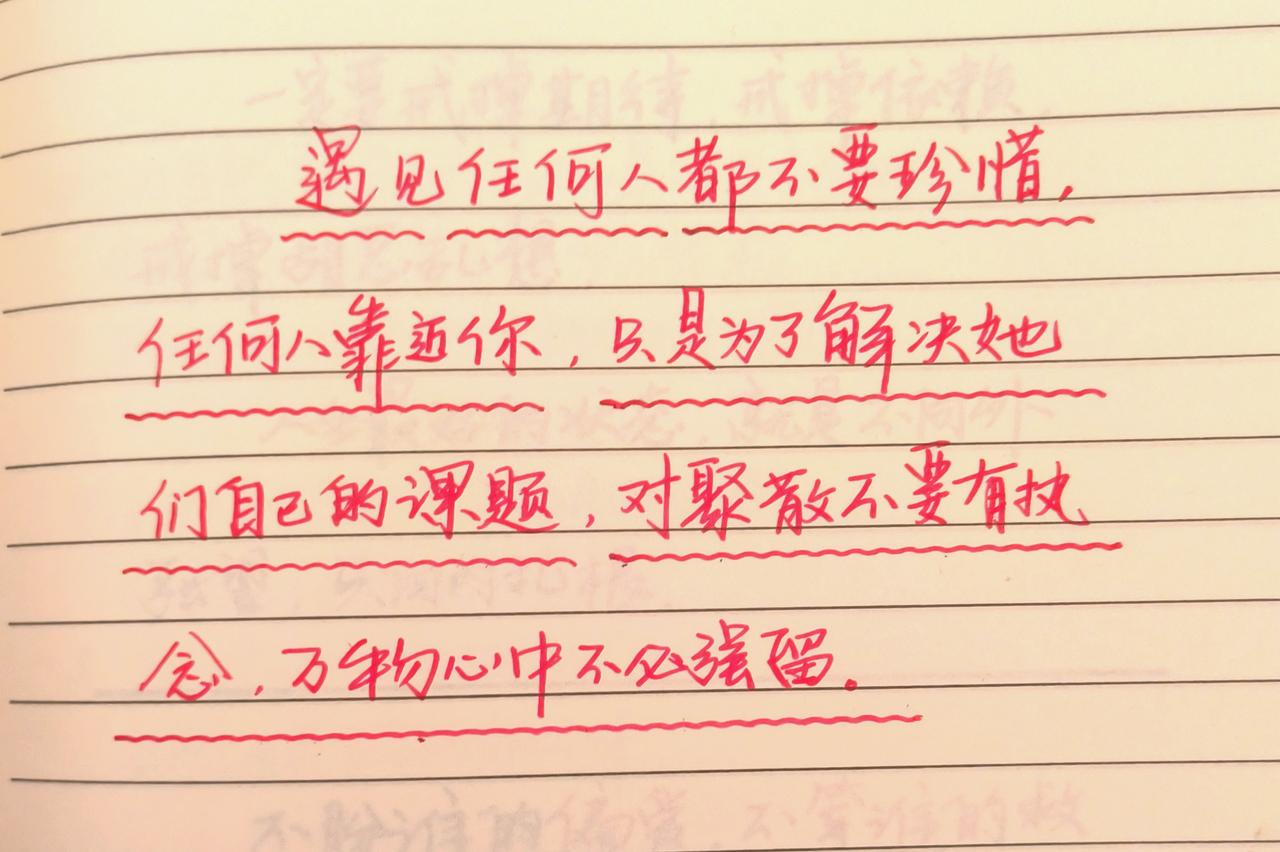 遇见任何人都不要珍惜,
任何人靠近你,只是为了解决她
们自己的课题,对聚散不要有执
念,万物心中不必强留。